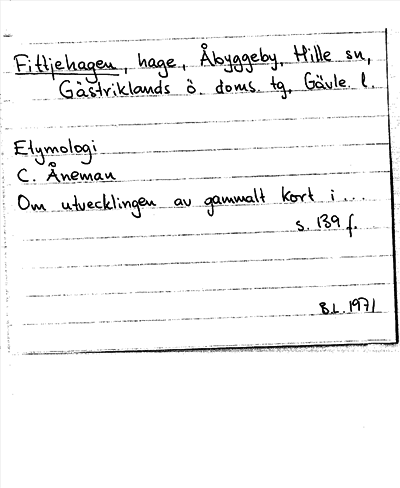 Fittjehagen, hage, Åbyggeby, Hille sn,
Gästriklands ö. doms. tg, Gävle. l.
Etymologi
C. Åneman
Om utvecklingen av gammalt kort i ...
s. 139 f.
B.L. 1971